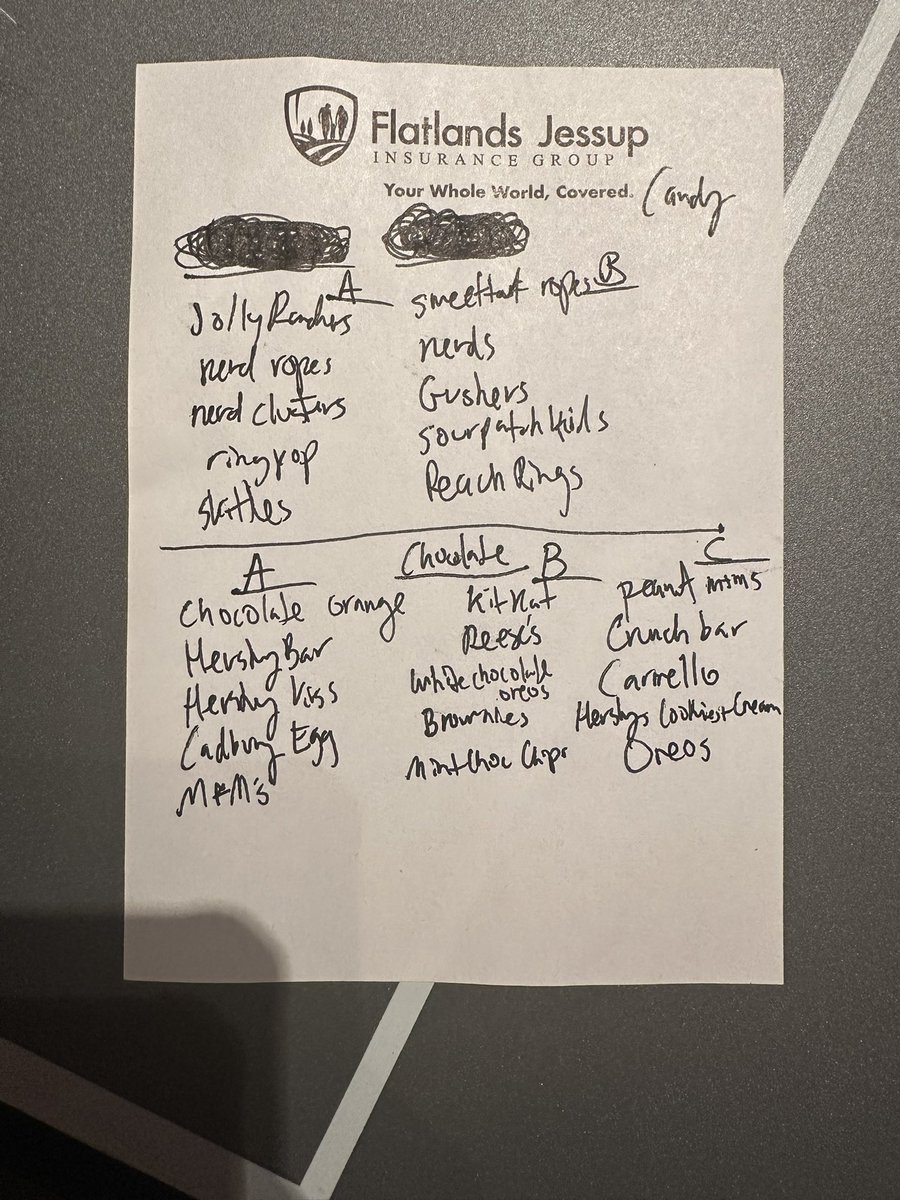 Flatlands Jessup
INSURANCE GROUP
Your Whole World, Covered.
Candy
A
Jolly Ranchrs
nerd ropes
nerd clusters
ring pop
skittles
B
sweettart ropes
nerds
Gushers
sourpatch kids
Peach Rings
Chocolate
A
Chocolate Orange
Hershy Bar
Hershy Kiss
Cadbury Egg
M&M's
B
Kit Kat
Reese's
white chocolate
oreos
Brownies
Mint Choc Chips
C
peanut m+ms
Crunch bar
Carmello
Hershys Cookies+Cream
Oreos